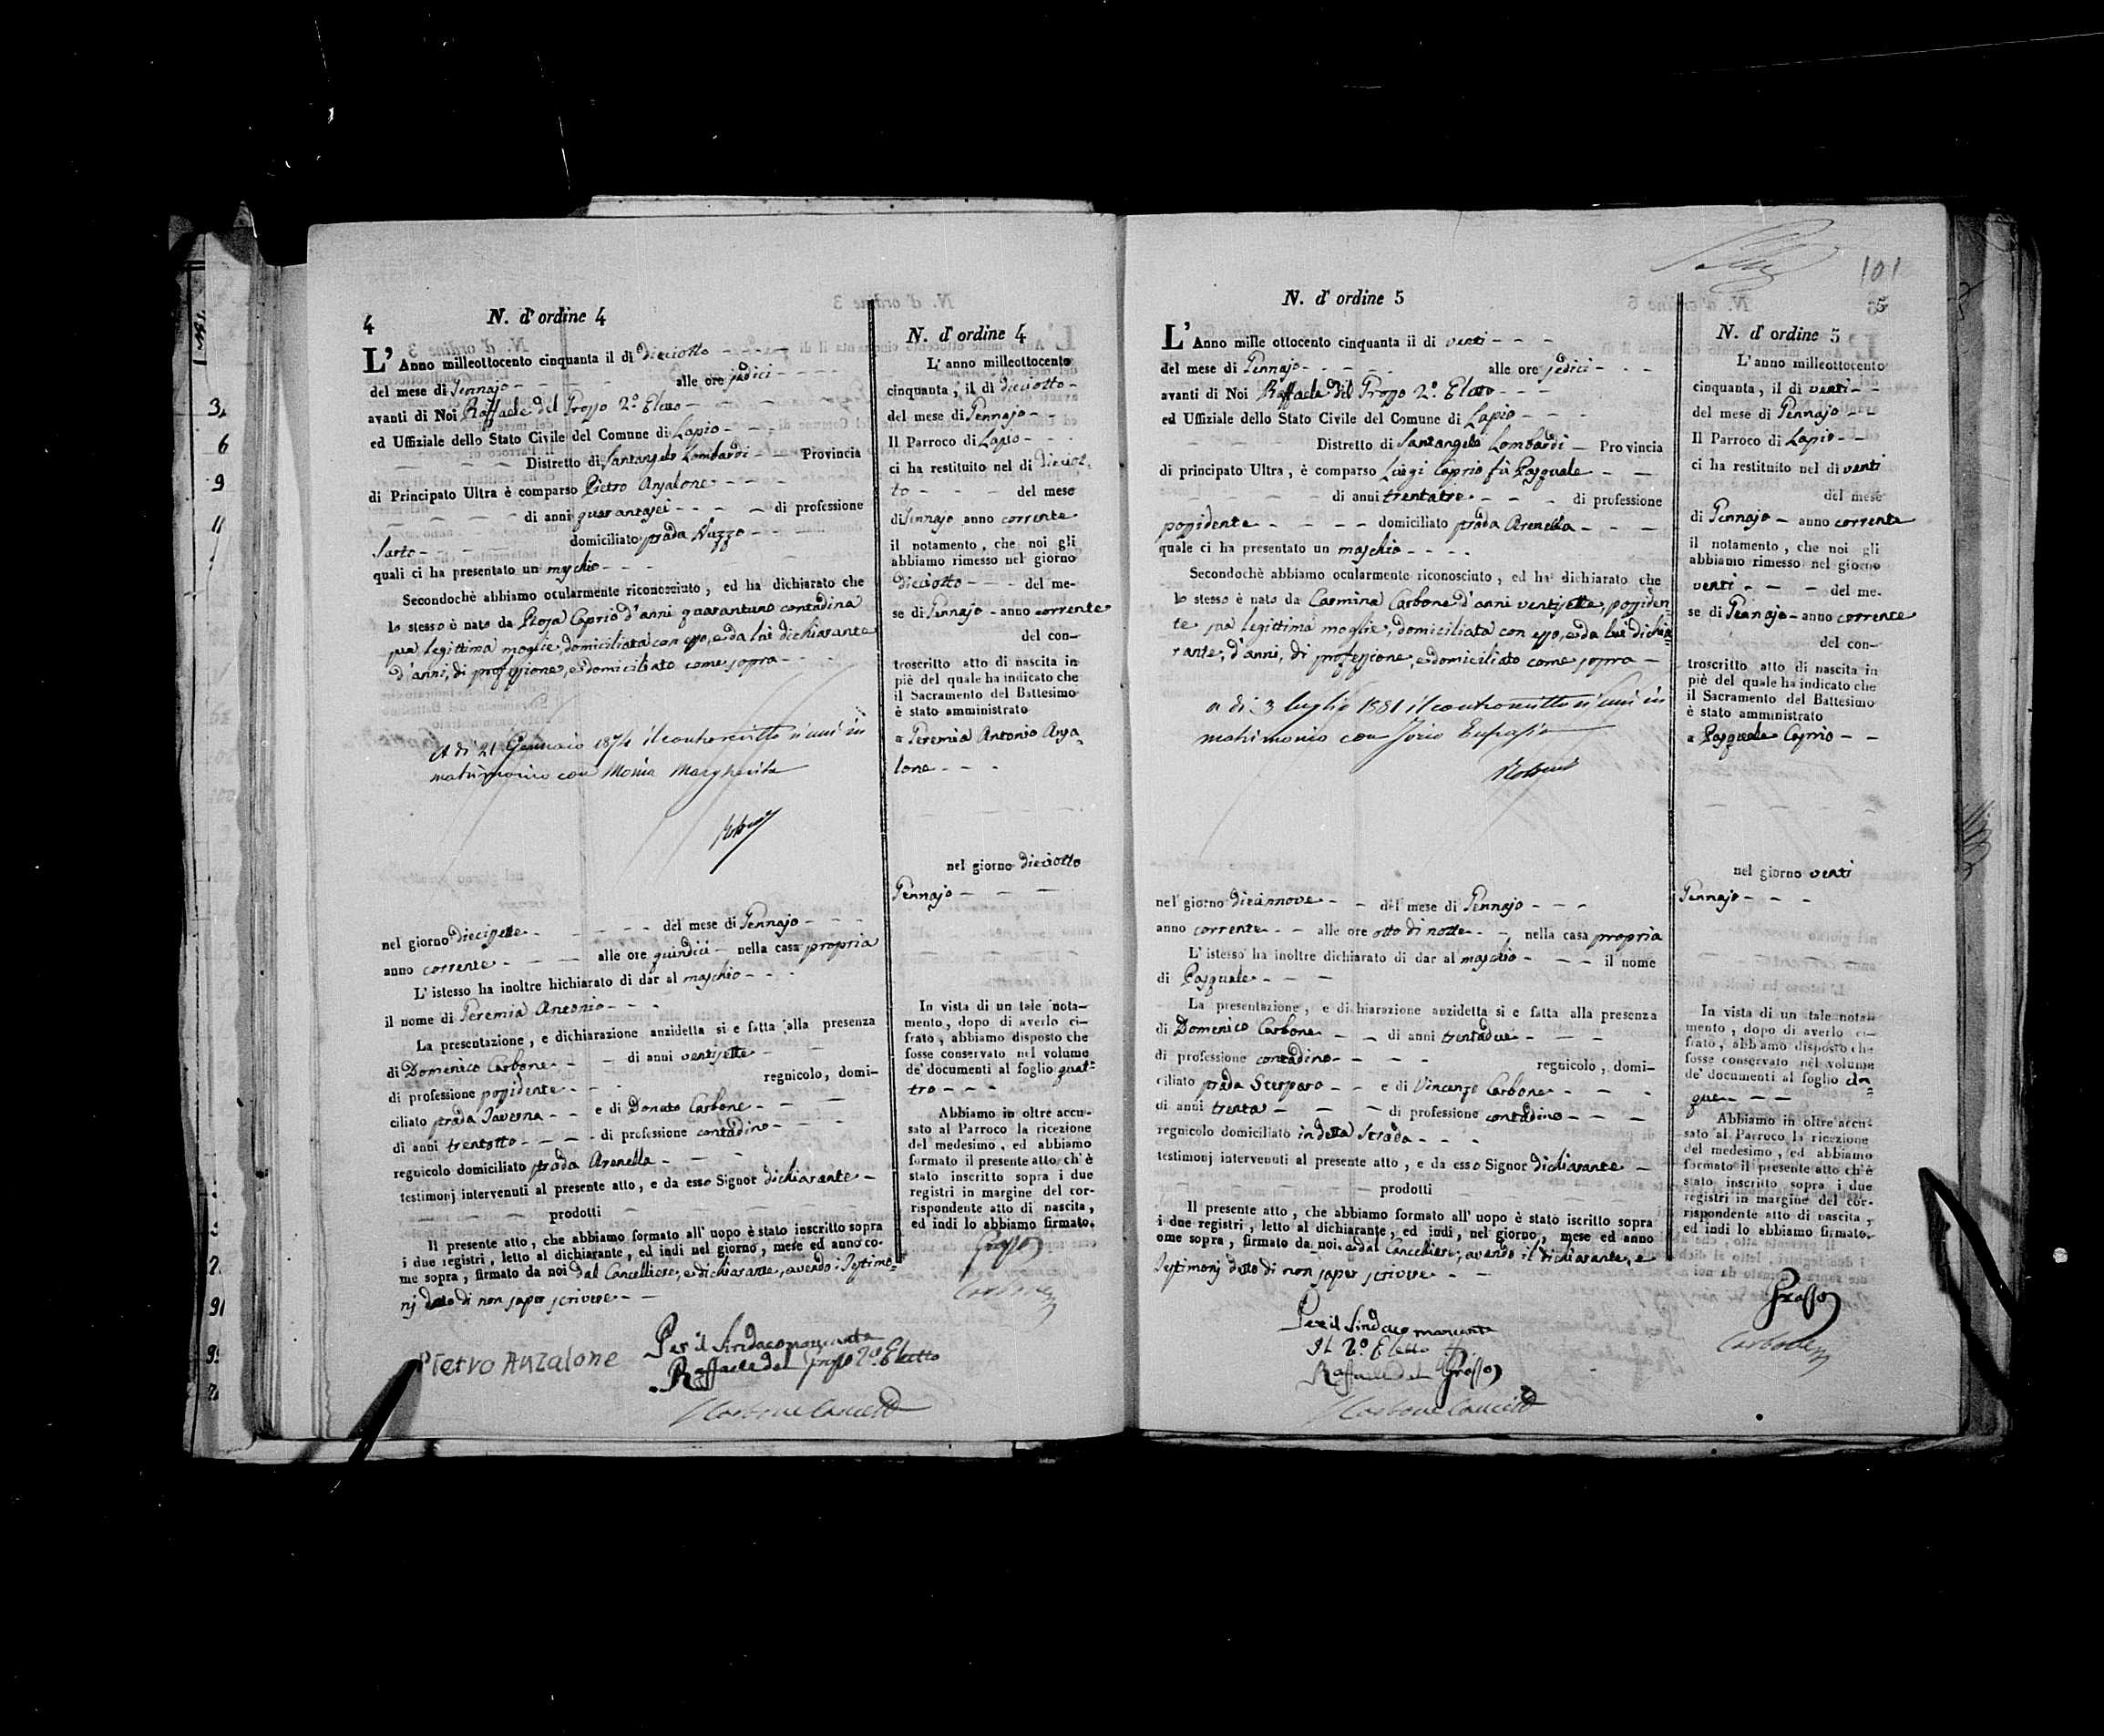 4
N. d' ordine 4
L' Anno milleottocento cinquanta il di dieciotto
del mese di Gennajo alle ore sedici
avanti di Noi Raffaele del Grosso 2.° Eletto
ed Uffiziale dello Stato Civile del Comune di Lapio
Distretto di Santangelo Lombardi Provincia
di Principato Ultra è comparso Pietro Anzalone
di anni quarantasei di professione
Sarto domiciliato strada Nuzzo
quali ci ha presentato un maschio
Secondochè abbiamo ocularmente riconosciuto, ed ha dichiarato che
lo stesso è nato da Rosa Caprio d'anni quarantuno contadina
sua legittima moglie, domiciliata con esso, e da lui dichiarante
d'anni, di professione, e domiciliato come sopra
A di 21 Gennaio 1874 il controscritto si unì in
matrimonio con Monia Margherita
nel giorno diecisette del mese di Gennajo
anno corrente alle ore quindici nella casa propria
L' istesso ha inoltre hichiarato di dar al maschio
il nome di Geremia Antonio
La presentazione, e dichiarazione anzidetta si e fatta alla presenza
di Domenico Carbone di anni ventisette
di professione possidente regnicolo, domi-
ciliato strada Taverna e di Donato Carbone
di anni trentotto di professione contadino
regnicolo domiciliato strada Arenella
testimonj intervenuti al presente atto, e da esso Signor dichiarante
prodotti
Il presente atto, che abbiamo formato all' uopo è stato inscritto sopra
i due registri, letto al dichiarante, ed indi nel giorno, mese ed anno co-
me sopra, firmato da noi dal Cancelliere, e dichiarante, avendo i Testimo-
nj detto di non saper scrivere
Pietro Anzalone
Per il Sindaco mancante
Raffaele del Grosso 2.° Eletto
Carbone Cancell
N. d' ordine 4
L' anno milleottocento
cinquanta, il di dieciotto
del mese di Gennajo
Il Parroco di Lapio
ci ha restituito nel di dieciot-
to del mese
di Gennajo anno corrente
il notamento, che noi gli
abbiamo rimesso nel giorno
dieciotto del me-
se di Gennajo anno corrente
del con-
troscritto atto di nascita in
piè del quale ha indicato che
il Sacramento del Battesimo
è stato amministrato
a Geremia Antonio Anza-
lone
nel giorno dieciotto
Gennajo
In vista di un tale nota-
mento, dopo di averlo ci-
frato, abbiamo disposto che
fosse conservato nel volume
de' documenti al foglio quat-
tro
Abbiamo in oltre accu-
sato al Parroco la ricezione
del medesimo, ed abbiamo
formato il presente atto ch'è
stato inscritto sopra i due
registri in margine del cor-
rispondente atto di nascita,
ed indi lo abbiamo firmato.
Grosso
Carbone
101
5
N. d' ordine 5
L' Anno mille ottocento cinquanta il di venti
del mese di Gennajo alle ore sedici
avanti di Noi Raffaele del Grosso 2.° Eletto
ed Uffiziale dello Stato Civile del Comune di Lapio
Distretto di Santangelo Lombardi Provincia
di principato Ultra, è comparso Luigi Caprio fù Pasquale
di anni trentatre di professione
possidente domiciliato strada Arenella
quale ci ha presentato un maschio
Secondochè abbiamo ocularmente riconosciuto, ed ha dichiarato che
lo stesso è nato da Carmina Carbone d'anni ventisette, possiden-
te sua legittima moglie, domiciliata con esso, e da lui dichia-
rante, d'anni, di professione, e domiciliato come sopra
a di 3 luglio 1881 il controscritto si unì in
matrimonio con Iorio Eufrasia
nel giorno diecinnove del mese di Gennajo
anno corrente alle ore otto di notte nella casa propria
L' istesso ha inoltre dichiarato di dar al maschio il nome
di Pasquale
La presentazione, e dichiarazione anzidetta si e fatta alla presenza
di Domenico Carbone di anni trentadue
di professione contadino regnicolo, domi-
ciliato strada Sterparo e di Vincenzo Carbone
di anni trenta di professione contadino
regnicolo domiciliato in detta Strada
testimonj intervenuti al presente atto, e da esso Signor dichiarante
prodotti
Il presente atto, che abbiamo formato all' uopo è stato iscritto sopra
i due registri, letto al dichiarante, ed indi, nel giorno, mese ed anno
ome sopra, firmato da noi, e dal Cancelliere, avendo il dichiarante, e
Testimonj detto di non saper scrivere
Per il Sindaco mancante
Il 2.° Eletto
Raffaele del Grosso
Carbone Cancell
N. d' ordine 5
L' anno milleottocento
cinquanta, il di venti
del mese di Gennajo
Il Parroco di Lapio
ci ha restituito nel di venti
del mese
di Gennajo anno corrente
il notamento, che noi gli
abbiamo rimesso nel giorno
venti del me-
se di Gennajo anno corrente
del con-
troscritto atto di nascita in
piè del quale ha indicato che
il Sacramento del Battesimo
è stato amministrato
a Pasquale Caprio
nel giorno venti
Gennajo
In vista di un tale nota-
mento, dopo di averlo ci-
frato, abbiamo disposto che
fosse conservato nel volume
de' documenti al foglio cin-
que
Abbiamo in oltre accu-
sato al Parroco la ricezione
del medesimo, ed abbiamo
formato il presente atto ch'è
stato inscritto sopra i due
registri in margine del cor-
rispondente atto di nascita,
ed indi lo abbiamo firmato.
Grosso
Carbone